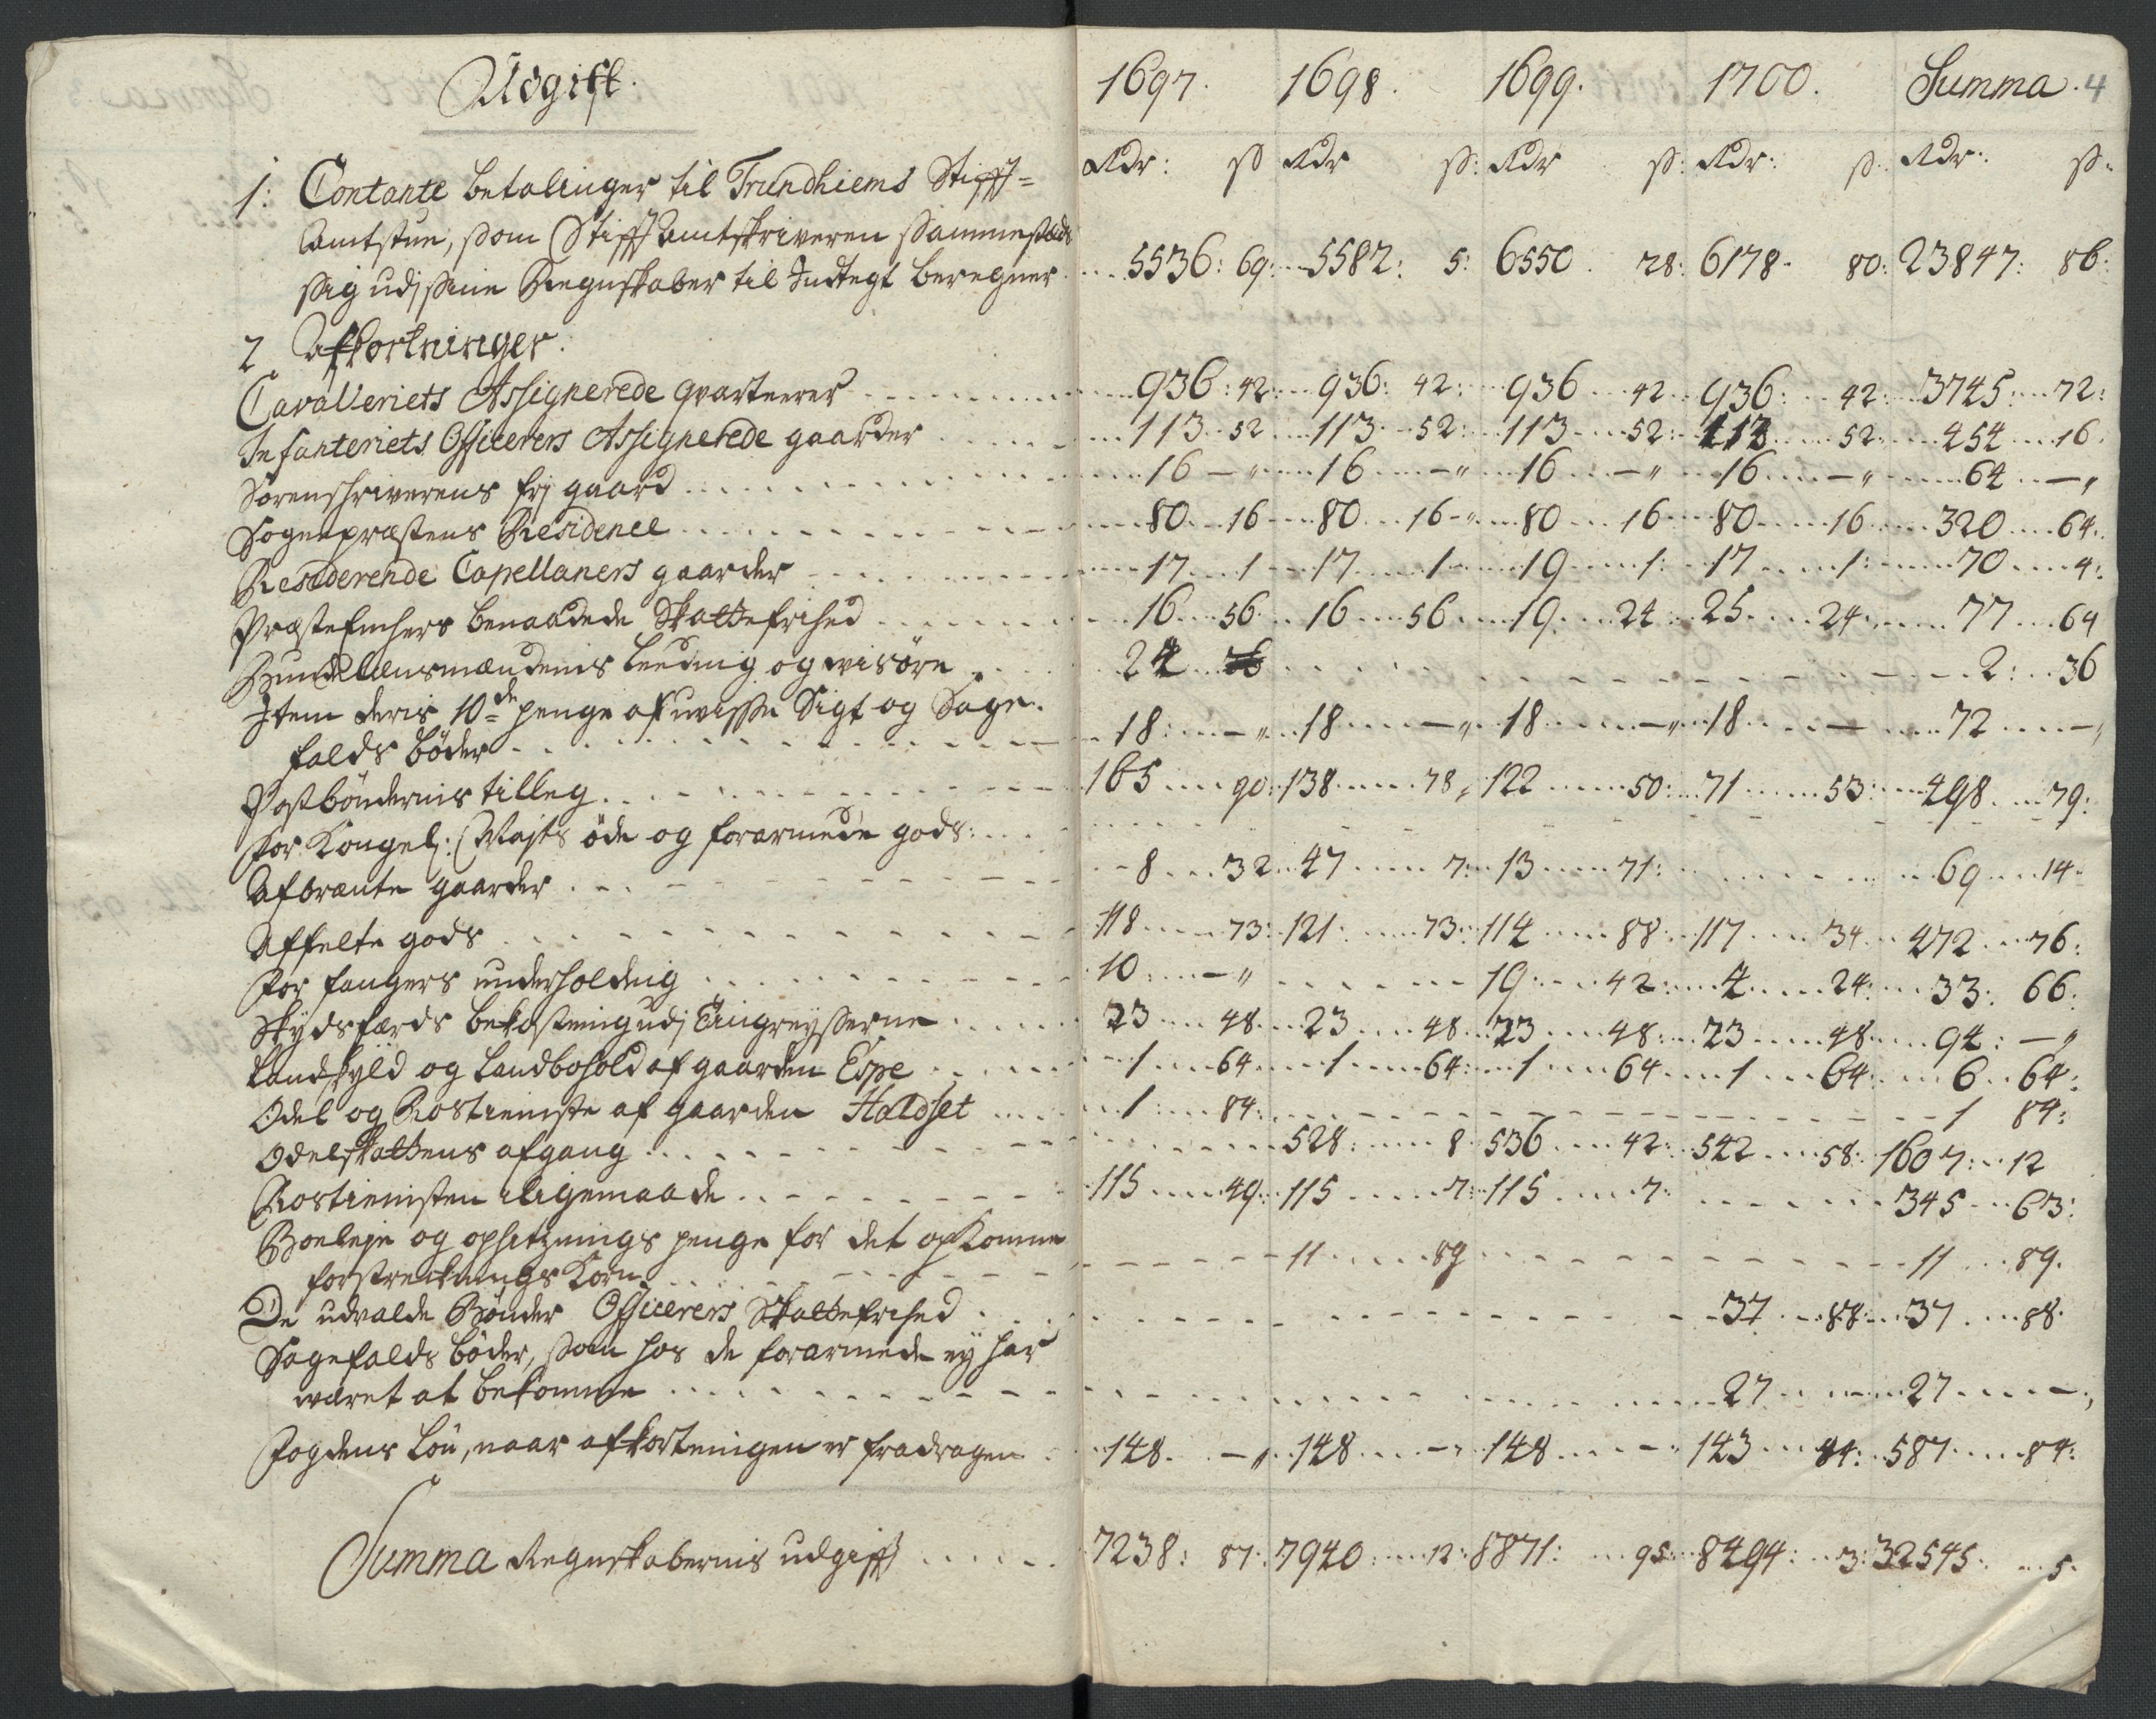 Udgift. 1697. 1698. 1699. 1700. Summa. 4
Rdr: ß Rdr ß: Rdr ß: Rdr: ß: Rdr: ß:
1: Contante betalinger til Trundhiems Stifft=
Amtstue, som Stifft Amtskriveren sammesteds
sig udj sine Regnskaber til Indtegt beregner 5536: 69: 5582: 5: 6550 28: 6178 80: 23847: 86:
2 Afkortninger.
Cavalleriets Assignerede qvarteerer 936: 42: 936: 42: 936 42 936: 42: 3745: 72:
Infanteriets Officerers Assignerede gaarder 113 52 113 52: 113 52: 113 52: 454 16.
Sorenschriverens frj gaard 16 - " 16 - " 16 - " 16 - " 64 - "
Sognepræstens Residence 80 16 80 16 80 16 80 16 320 64:
Residerende Capellaners gaarder 17 1 17 1 19 1: 17 1: 70 4:
Præste Enchers benaadede Skattefrihed 16 56 16 56 19 24 25 24: 77 64
Bundelensmændenis leeding og visøre 24 2: 36
Item deris 10de penge af uvisse Sigt og Sage=
falds bøder 18: - " 18 - " 18 - " 18 - 72 - "
Postbøndernis tilleg 165 90: 138 78, 122 50: 71 53: 498 79:
For Kongel: Mayts øde og forarmede gods:
Afbrænte gaarder 8 32 47 7: 13 71: 69 14
Affelte gods 118 73: 121 73: 114 88: 117 34 472 76:
For fangers underholdnig 10: - " 19: 42: 4 24: 33: 66:
Skydsfærds bekostning udj Tingreyserne 23 48 23 48 23 48: 23 48 94: - "
Landskyld og Landbohold af gaarden Espe 1 64 1 64: 1 64 1 64: 6 64:
Odel og Rostieniste af gaarden Haldset 1 84: 1 84:
Odelskattens afgang 528: 8 536 42: 542 58: 1607: 12
Rostienisten ligemaade 115 49: 115 7: 115 7: 345 63:
Boeleye og opsetznings penge for det opkomne
forstrecknings Korn 11 89 11 89.
De udvalde Bønder Officerers Skattefrihed 37 88: 37 88.
Sagefalds bøder, som hos de forarmede ej har
været at bekomme 27 - 27 -,
Fogdens løn, naar afkortningen er fradragen 148 - " 148 - " 148 - " 143 84: 587 84:
Summa Regnskabernis udgifft 7238: 87: 7940: 12: 8871: 95: 8494: 3: 32545: 5.